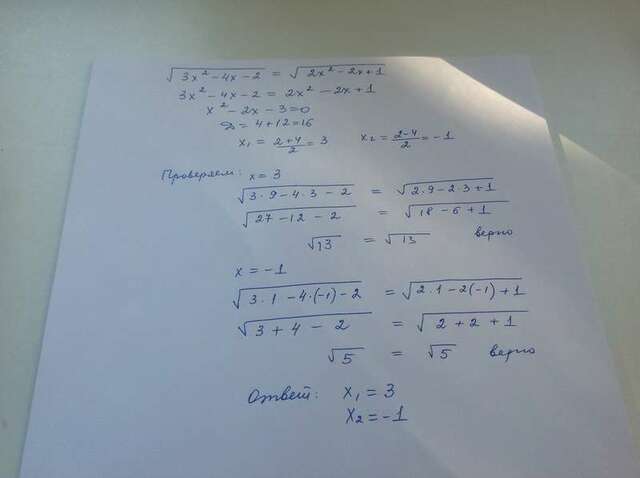 √(3x² − 4x − 2) = √(2x² − 2x + 1)
3x² − 4x − 2 = 2x² − 2x + 1
x² − 2x − 3 = 0
D = 4 + 12 = 16
x₁ = (2+4)/2 = 3 x₂ = (2−4)/2 = −1
Проверяем: x = 3
√(3·9 − 4·3 − 2) = √(2·9 − 2·3 + 1)
√(27 − 12 − 2) = √(18 − 6 + 1)
√13 = √13 верно
x = −1
√(3·1 − 4·(−1) − 2) = √(2·1 − 2(−1) + 1)
√(3 + 4 − 2) = √(2 + 2 + 1)
√5 = √5 верно
Ответ: x₁ = 3
x₂ = −1